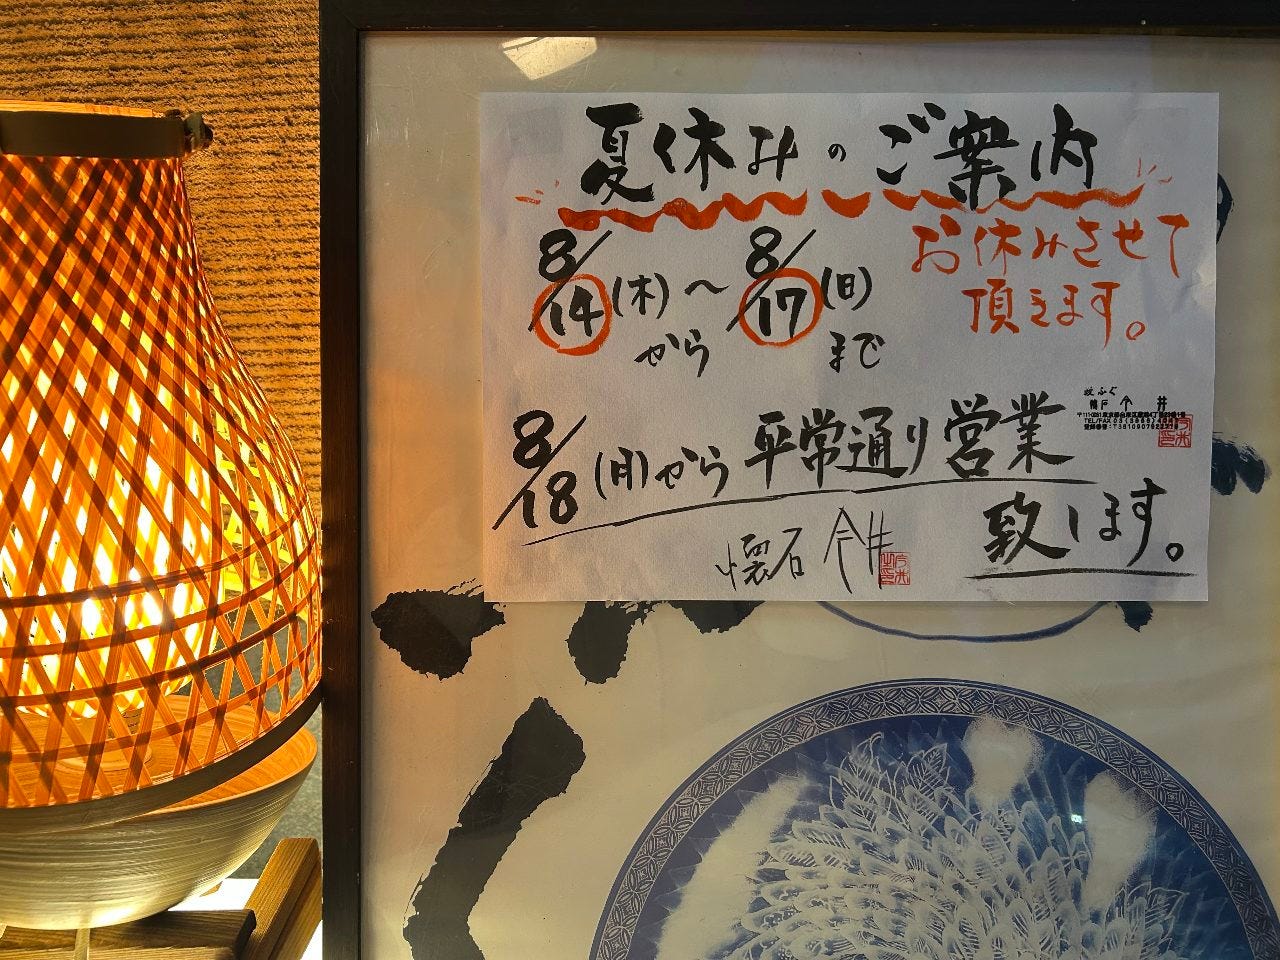 夏休みのご案内
8/14(木)〜8/17(日)
から まで
お休みさせて
頂きます。
8/18(月)から平常通り営業
致します。
懐石 今井
今井